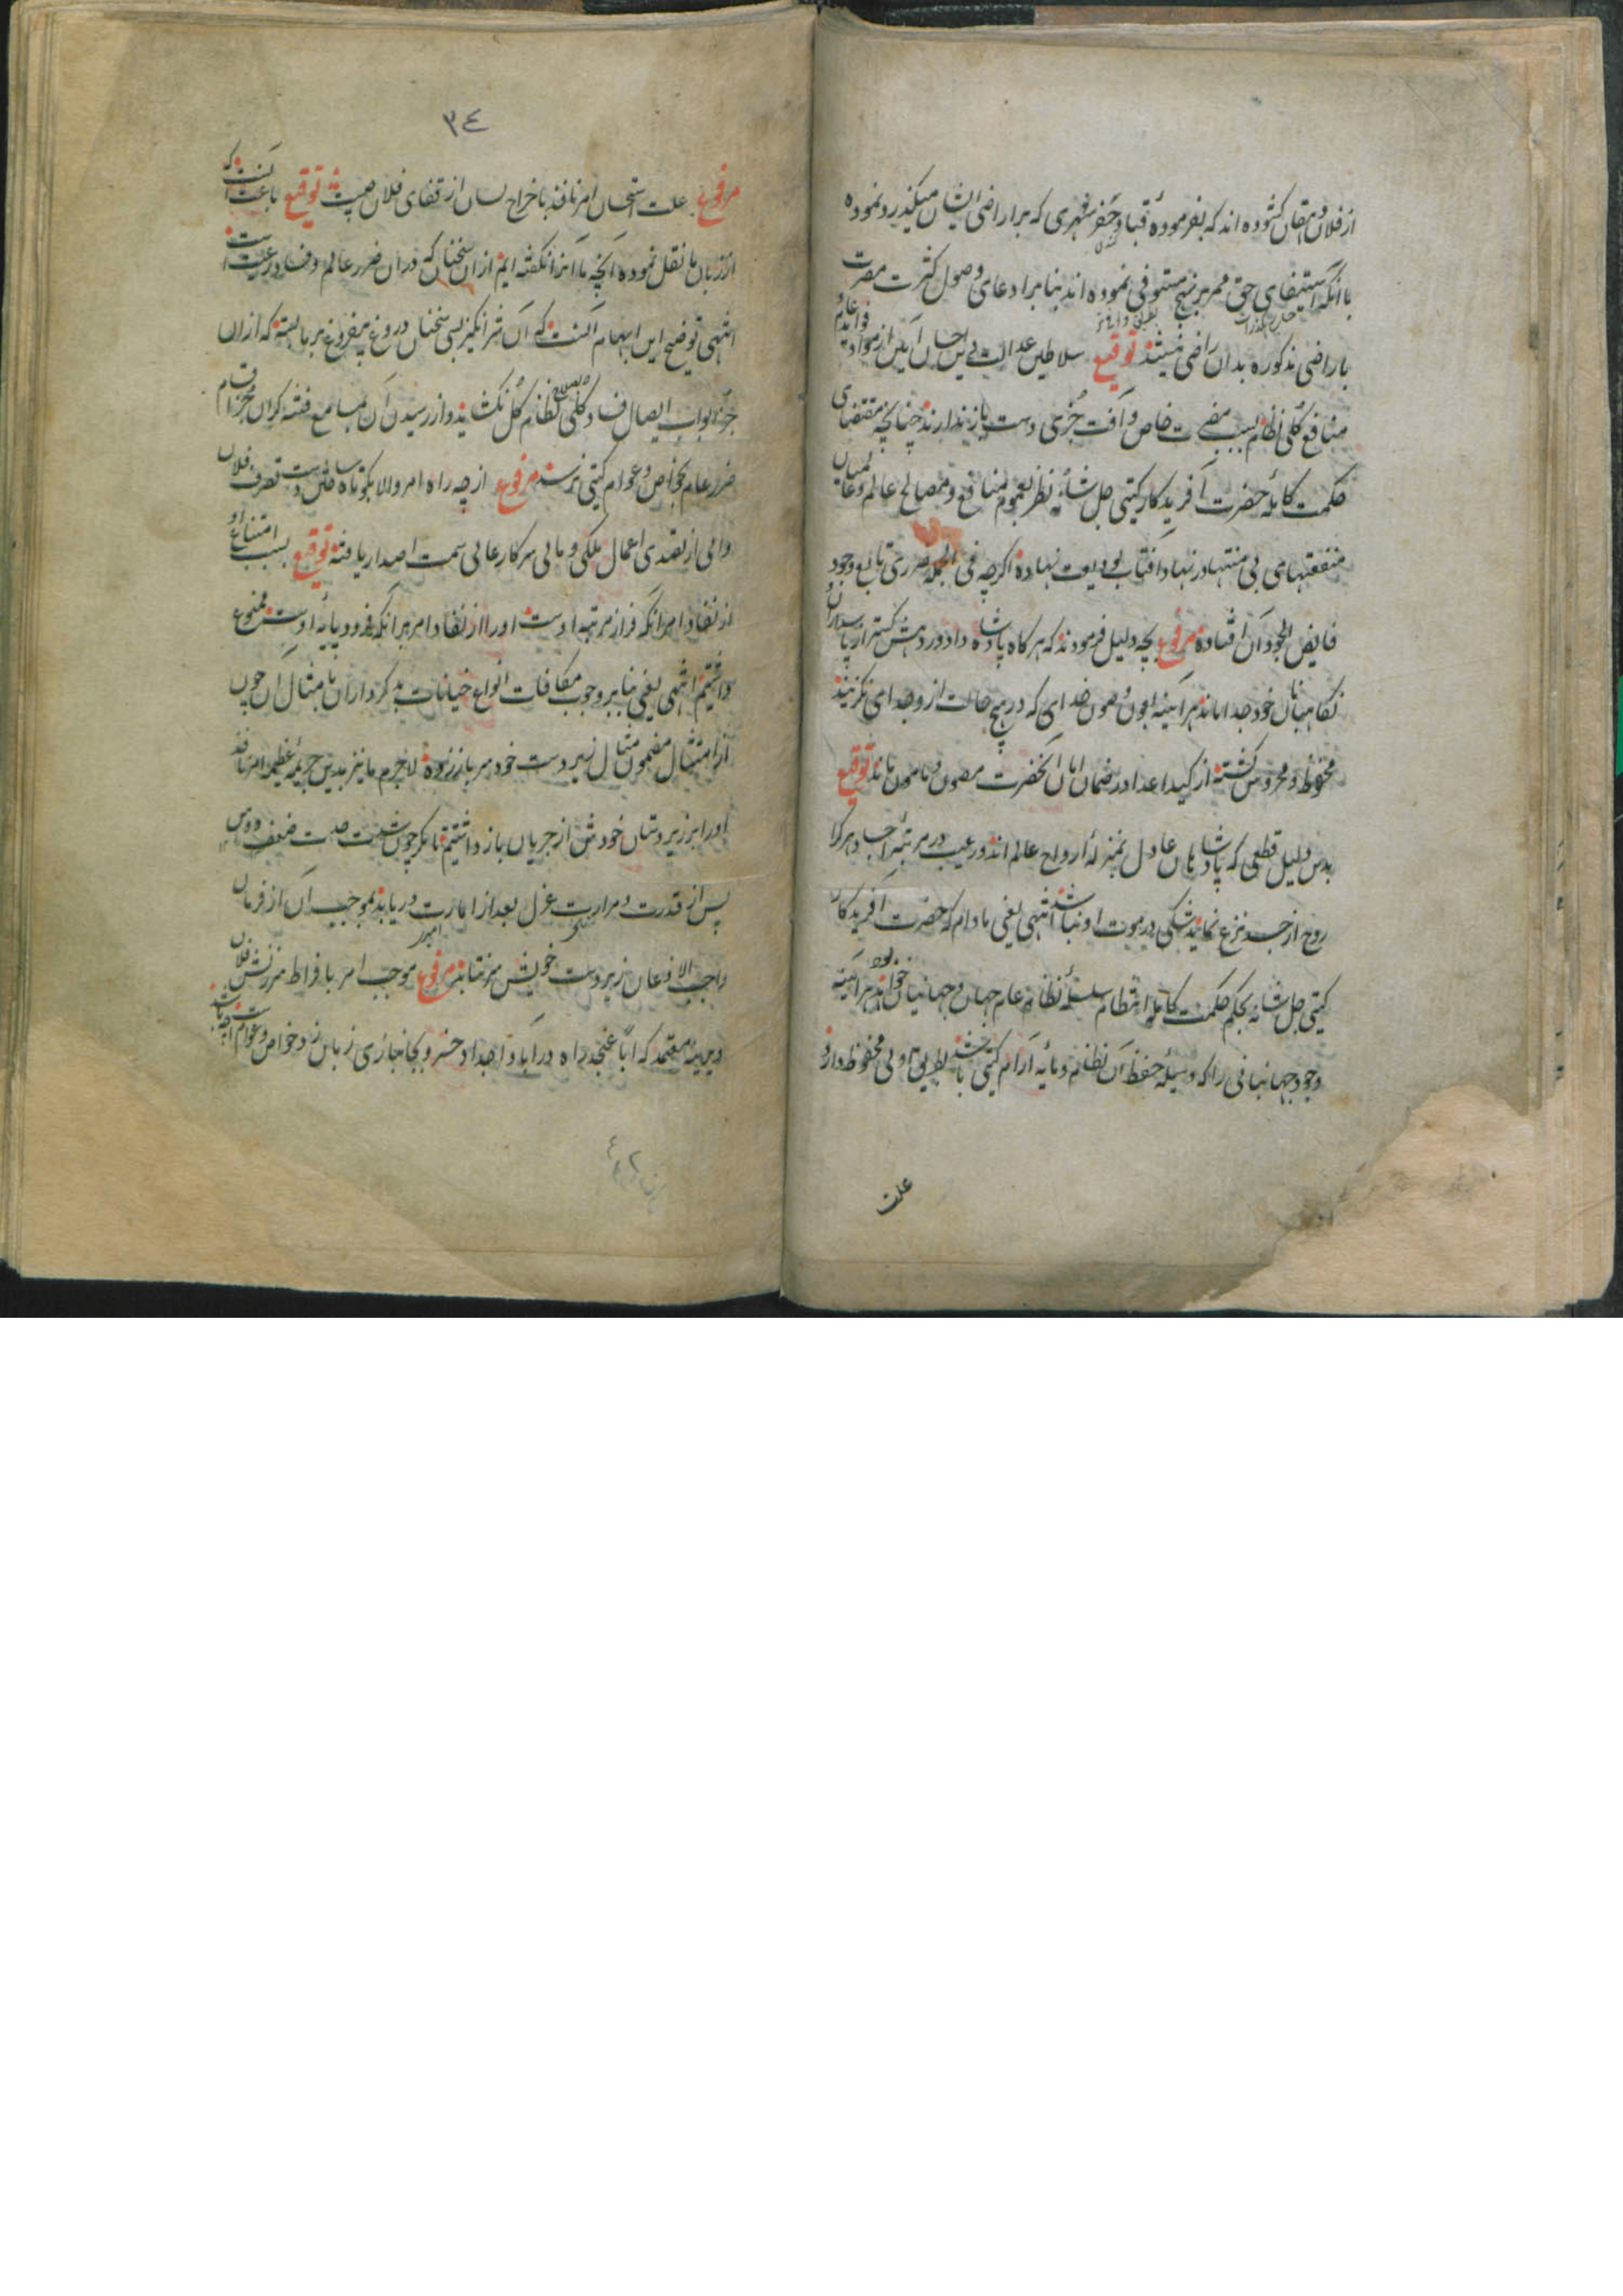 از فلان دهقان کشوده اند که بفرموده قباد حفر نهری که بر اراضی ایشان میکذرد نموده
با آنکه استیفای حق ممر بر نهج مستوفی نموده اند بنا بر ادعای وصول کثرت مضرت
باراضی مذکوره بدان راضی نیستند توقیع سلاطین عدالت آیین از مواد فواید عام و
منافع کلی نظام بسبب مضرت خاص و آفت جزی دست باز ندارند چنانچه مقتضای
حکمت کامله حضرت آفریدکار کیتی جل شانه نظر بعموم منافع و مصالح عالم و عالمیان
منفعتهای بی منتها در نهاد آفتاب بودیعت نهاده اکرچه فی الجمله ضرری تابع وجود
فایض الجود آن افتاده مرفوع بچه دلیل فرمودند که هر کاه پادشاه دادور دهش کستر از پاسداران و
نکاهبانان خود جدا ماند هر آینه بعون و صون خدای که در هیچ حالت از و جدای نکزیند
محفوظ و محروس کشته از کید اعدا در ضمان امان آنحضرت مصون و مامون ماند توقیع
بدین دلیل قطعی که پادشاهان عادل بمنزله ارواح عالم اند و رعیت در مرتبه اجساد و هر کاه
روح از جسد نزع نماید شکی در موت او نباشد انتهی یعنی مادام که حضرت آفریدکار
کیتی جل شانه بحکم حکمت کامله انتظام سلسله نظام عام جهان و جهانیان خواهد هر آینه
وجود جهانبانی را که وسیله حفظ آن نظام و مایه آرام کیتی باشد بطریق اولی محفوظ دارد
علت
٣٤
مرفوع علت استحسان امر نافذ باخراج لسان از قفای فلان چیست توقیع باعث آنست که
از زبان ما نقل نموده آنچه ما آنرا نکفته ایم از آن سخنان که در آن ضرر عالم و فساد رعیت است
انتهی توضیح این ابهام آنست که آن شرانکیز بسی سخنان دروغ بیفروغ بر ما بسته که از آن
جز ابواب ایصال فساد کلی بنظام کل نکشاید و از رسیدن آن بمسامع فتنه کران جز اقسام
ضرر عام بخواص و عوام کیتی نرسد مرفوع از چه راه امر والا بکوتاه ساختن دست تصرف فلان
والی از تصدی اعمال ملکی و مالی سرکار عالی سمت اصدار یافته توقیع بسبب امتناع او
از نفاذ امر آنکه فراز مرتبه اوست او را از نفاذ امر بر آنکه فرود پایه اوست ممنوع
داشتیم انتهی یعنی بنا بر وجوب مکافات انواع خیانات بد کرداران بامثال آن چون
از امتثال مضمون مثال زبردست خود سر باز زده لاجرم ما نیز بدین جریمه عظیمه امر نافذ
او را بر زیردستان خودش از جریان باز داشتیم تا مکر چون شدت صدمت ضعف
پس از قدرت و مرارت عزل بعد از امارت دریابد بموجب آن از فرمان
واجب الاذعان زبردست خویش سر نتابد مرفوع موجب امر بافراط سرزنش فلان
دیرینه معتمد که اباً عن جد راه در آبا و اجداد خسرو بجانبازی زبان زد خواص و عوام است چه باشد